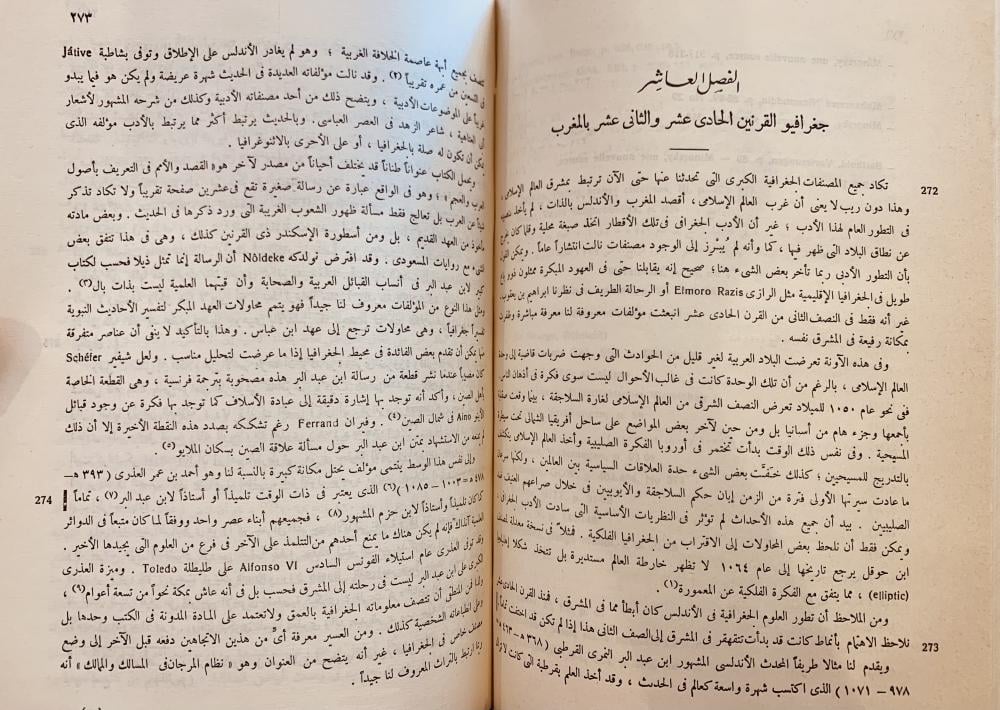 الفصل العاشر
جغرافيو القرنين الحادى عشر والثانى عشر بالمغرب
272
تكاد جميع المصنفات الجغرافية الكبرى التى تحدثنا عنها حتى الآن ترتبط بمشرق العالم الإسلامى
وهذا دون ريب لا يعنى أن غرب العالم الإسلامى، أقصد المغرب والأندلس بالذات، لم يأخذ
فى التطور العام لهذا الأدب؛ غير أن الأدب الجغرافى فى تلك الأقطار اتخذ صبغة محلية وقلما كان
عن نطاق البلاد التى ظهر فيها، كما وأنه لم يُبرز إلى الوجود مصنفات نالت انتشاراً عاماً. ويمكن القول
بأن التطور الأدبى ربما تأخر بعض الشىء هنا؛ صحيح إنه يقابلنا حتى فى العهود المبكرة ممثلون ذوو باع
طويل فى الجغرافيا الإقليمية مثل الرازى Elmoro Razis أو الرحالة الطريف فى نظرنا ابراهيم بن يعقوب،
غير أنه فقط فى النصف الثانى من القرن الحادى عشر انبعثت مؤلفات معروفة لنا معرفة مباشرة وظفرت
بمكانة رفيعة فى المشرق نفسه.
وفى هذه الآونة تعرضت البلاد العربية لغير قليل من الحوادث التى وجهت ضربات قاضية إلى وحدة
العالم الإسلامى، بالرغم من أن تلك الوحدة كانت فى غالب الأحوال ليست سوى فكرة فى أذهان الناس.
ففى نحو عام ١٠٥٠ للميلاد تعرض النصف الشرق من العالم الإسلامى لغارة السلاجقة، بينما وقعت صقلية
بأجمعها وجزء هام من أسبانيا بل ومن حين لآخر بعض المواضع على ساحل أفريقيا الشمالى تحت سيطرة
المسيحية. وفى نفس ذلك الوقت بدأت تختمر فى أوروبا الفكرة الصليبية وأخذ العالم الإسلامى ينكشف
بالتدريج للمسيحيين؛ كذلك خفّت بعض الشىء حدة العلاقات السياسية بين العالمين، ولكنها سرعان
ما عادت سيرتها الأولى فترة من الزمن إبان حكم السلاجقة والأيوبيين فى خلال صراعهم العنيف ضد
الصليبيين. بيد أن جميع هذه الأحداث لم تؤثر فى النظريات الأساسية التى سادت الأدب الجغرافى
ويمكن فقط أن نلحظ بعض المحاولات إلى الاقتراب من الجغرافيا الفلكية. فمثلا فى نسخة معدلة لمصنف
ابن حوقل يرجع تاريخها إلى عام ١٠٦٤ لا تظهر خارطة العالم مستديرة بل تتخذ شكلا إهليلجياً
(elliptic)، مما يتفق مع الفكرة الفلكية عن المعمورة(١).
ومن الملاحظ أن تطور العلوم الجغرافية فى الأندلس كان أبطأ مما فى المشرق، فمنذ القرن الحادى عشر
نلاحظ الاهتمام بأنماط كانت قد بدأت تتقهقر فى المشرق إلى الصف الثانى هذا إذا لم تكن قد اختفت تماماً
273
ويقدم لنا مثالا طريفاً المحدث الأندلسى المشهور ابن عبد البر النمرى القرطبى (٣٦٨ﻫ–٤٦٣ﻫ =
٩٧٨ – ١٠٧١) الذى اكتسب شهرة واسعة كعالم فى الحديث، وقد أخذ العلم بقرطبة التى كانت لا تزال
٢٧٣
تتصف بجميع أبهة عاصمة الخلافة الغربية؛ وهو لم يغادر الأندلس على الإطلاق وتوفى بشاطبة Játive
فى التسعين من عمره تقريباً(٢). وقد نالت مؤلفاته العديدة فى الحديث شهرة عريضة ولم يكن هو فيما يبدو
غريباً على الموضوعات الأدبية، ويتضح ذلك من أحد مصنفاته الأدبية وكذلك من شرحه المشهور لأشعار
أبى العتاهية، شاعر الزهد فى العصر العباسى. وبالحديث يرتبط أكثر مما يرتبط بالأدب مؤلفه الذى
يمكن أن تكون له صلة بالجغرافيا، أو على الأحرى بالاثنوغرافيا.
ويحمل الكتاب عنواناً طناناً قد يختلف أحياناً من مصدر لآخر هو «القصد والأمم فى التعريف بأصول
العرب والعجم»؛ وهو فى الواقع عبارة عن رسالة صغيرة تقع فى عشرين صفحة تقريباً ولا تكاد تذكر
شيئاً عن العرب بل تعالج فقط مسألة ظهور الشعوب الغريبة التى ورد ذكرها فى الحديث. وبعض مادته
مأخوذ من العهد القديم، بل ومن أسطورة الإسكندر ذى القرنين كذلك، وهى فى هذا تتفق بعض
الشىء مع روايات المسعودى. وقد افترض نولدكه Nöldeke أن الرسالة إنما تمثل ذيلا فحسب لكتاب
كبير لابن عبد البر فى أنساب القبائل العربية والصحابة وأن قيمتها العلمية ليست بذات بال(٣).
ومثل هذا النوع من المؤلفات معروف لنا جيداً فهو يتمم محاولات العهد المبكر لتفسير الأحاديث النبوية
تفسيراً جغرافياً، وهى محاولات ترجع إلى عهد ابن عباس. وهذا بالتأكيد لا ينفى أن عناصر متفرقة
منها يمكن أن تقدم بعض الفائدة فى محيط الجغرافيا إذا ما عرضت لتحليل مناسب. ولعل شيفير Schéfer
كان مصيباً عندما نشر قطعة من رسالة ابن عبد البر هذه مصحوبة بترجمة فرنسية، وهى القطعة الخاصة
بأهل الصين، وأكد أنه توجد بها إشارة دقيقة إلى عبادة الأسلاف كما توجد بها فكرة عن وجود قبائل
الأينو Aino فى شمال الصين(٤). وفيران Ferrand رغم تشككه بصدد هذه النقطة الأخيرة إلا أن ذلك
لم يمنعه من الاستشهاد بمتن ابن عبد البر حول مسألة علاقة الصين بسكان الملايو(٥).
وإلى نفس هذا الوسط ينتمى مؤلف يحتل مكانة كبيرة بالنسبة لنا وهو أحمد بن عمر العذرى (٣٩٣ ﻫ–
274
٤٧٨ ﻫ = ١٠٠٣ – ١٠٨٥)(٦) الذى يعتبر فى ذات الوقت تلميذاً أو أستاذاً لابن عبد البر(٧)، تماماً
كما كان تلميذاً وأستاذاً لابن حزم المشهور(٨)، فجميعهم أبناء عصر واحد ووفقاً لما كان متبعاً فى الدوائر
العلمية آنذاك فإنه لم يكن هناك ما يمنع أحدهم من التتلمذ على الآخر فى فرع من العلوم التى يجيدها الأخير.
وقد توفى العذرى عام استيلاء الفونس السادس Alfonso VI على طليطلة Toledo. وميزة العذرى
الكبرى على ابن عبد البر ليست فى رحلته إلى المشرق فحسب بل فى أنه عاش بمكة نحواً من تسعة أعوام(٩)،
ولذا فمن المنطقى أن تتصف معلوماته الجغرافية بالعمق ولا تعتمد على المادة المدونة فى الكتب وحدها بل
وعلى انطباعاته الشخصية كذلك. ومن العسير معرفة أىٍّ من هذين الاتجاهين دفعه قبل الآخر إلى وضع
مصنف خاص فى الجغرافيا، غير أنه يتضح من العنوان وهو «نظام المرجان فى المسالك والممالك» أنه
ربما ارتبط بالتراث المعروف لنا جيداً.